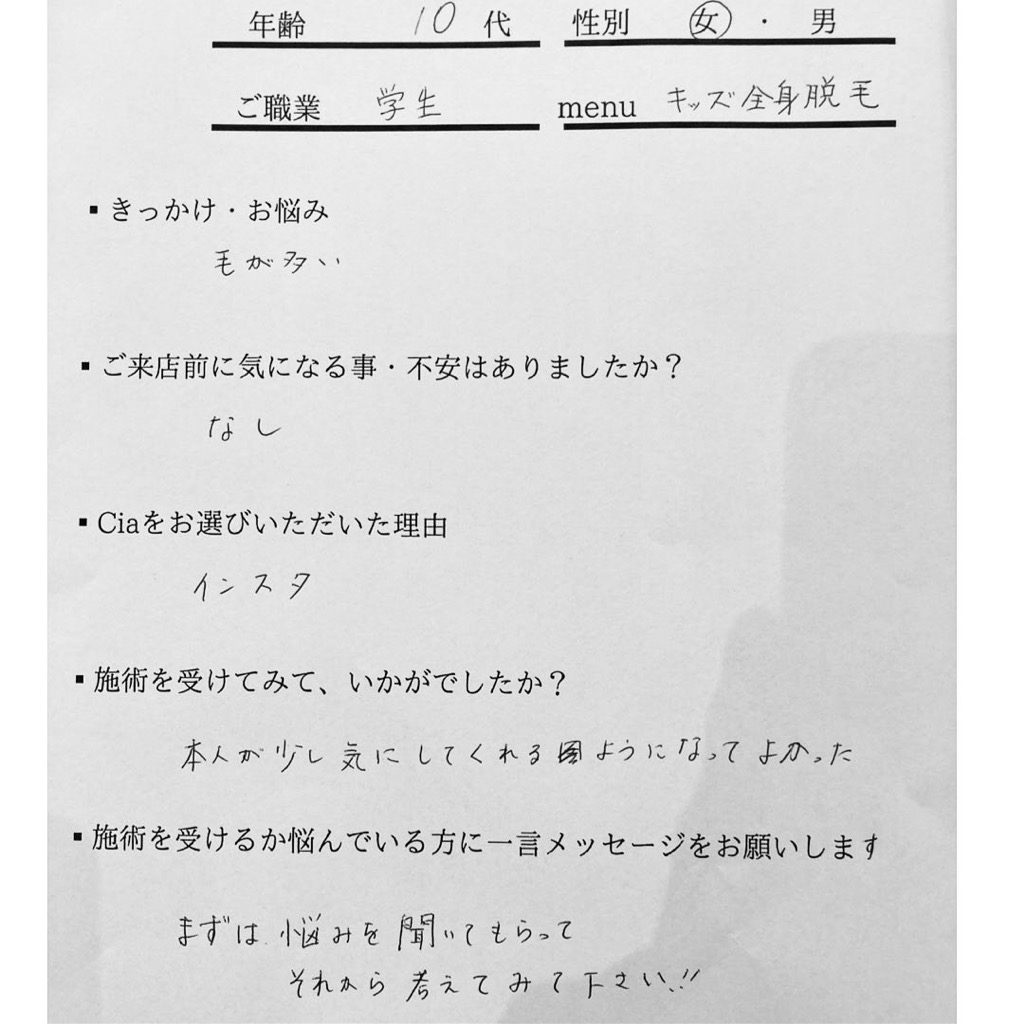 年齢 10代 性別 女・男
ご職業 学生 menu キッズ全身脱毛
▪きっかけ・お悩み
毛が多い
▪ご来店前に気になる事・不安はありましたか？
なし
▪Ciaをお選びいただいた理由
インスタ
▪施術を受けてみて、いかがでしたか？
本人が少し気にしてくれるようになってよかった
▪施術を受けるか悩んでいる方に一言メッセージをお願いします
まずは悩みを聞いてもらって
それから考えてみて下さい!!